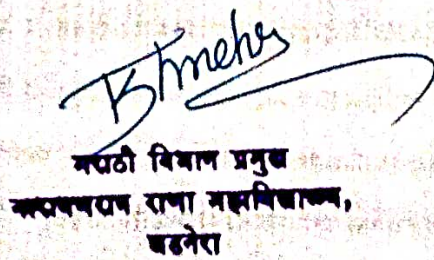 मराठी विभाग प्रमुख
नारायणराव राणा महाविद्यालय,
बडनेरा